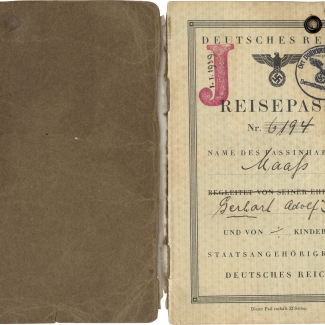 DEUTSCHES RE
J
1.1.1939
REISEPAS
Nr. 6194
NAME DES PASSINHAB
Maaß
BEGLEITET VON SEINER EHE
Gerhart Adolf
UND VON ÷ KINDER
STAATSANGEHÖRIGK
DEUTSCHES REIC
Dieser Paß enthält 32 Seiten